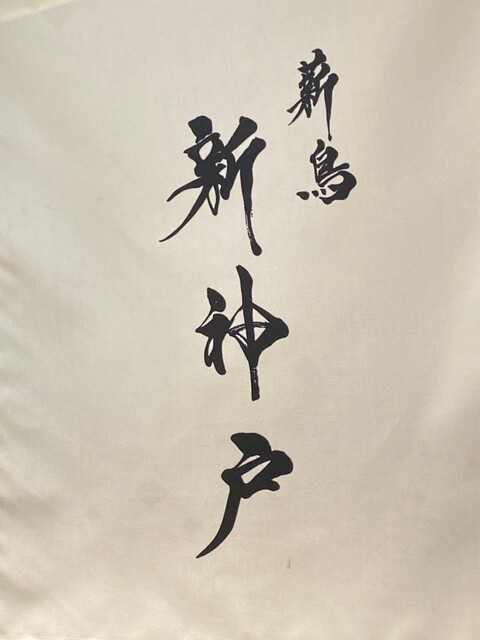 薪鳥
新神戸